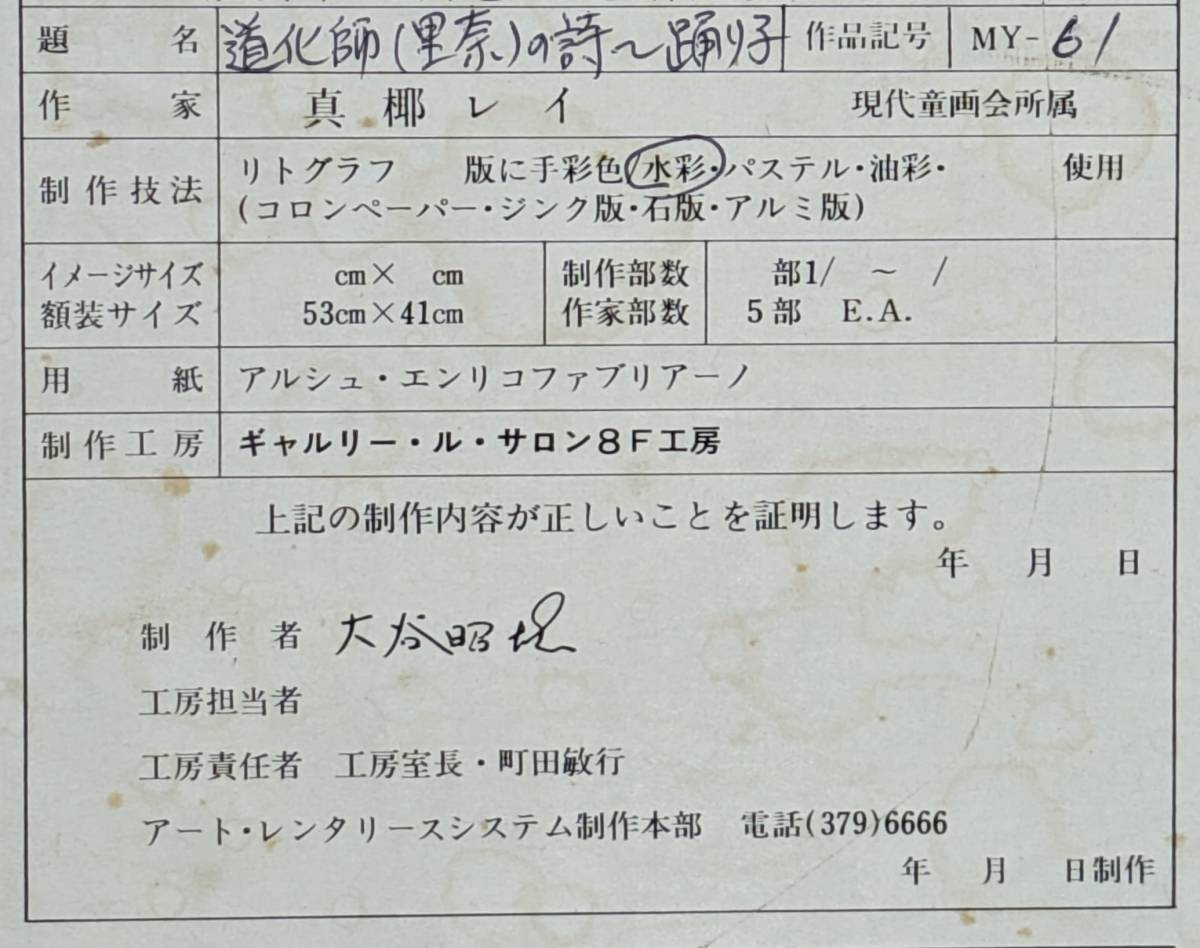 題名 道化師(里奈)の詩〜踊り子 作品記号 MY-61
作家 真椰レイ 現代童画会所属
制作技法 リトグラフ 版に手彩色/水彩・パステル・油彩・ 使用
(コロンペーパー・ジンク版・石版・アルミ版)
イメージサイズ cm× cm 制作部数 部1/ ~ /
額装サイズ 53cm×41cm 作家部数 5部 E.A.
用紙 アルシュ・エンリコファブリアーノ
制作工房 ギャルリー・ル・サロン8F工房
上記の制作内容が正しいことを証明します。
年 月 日
制作者 大谷昭
工房担当者
工房責任者 工房室長・町田敏行
アート・レンタリースシステム制作本部 電話(379)6666
年 月 日制作